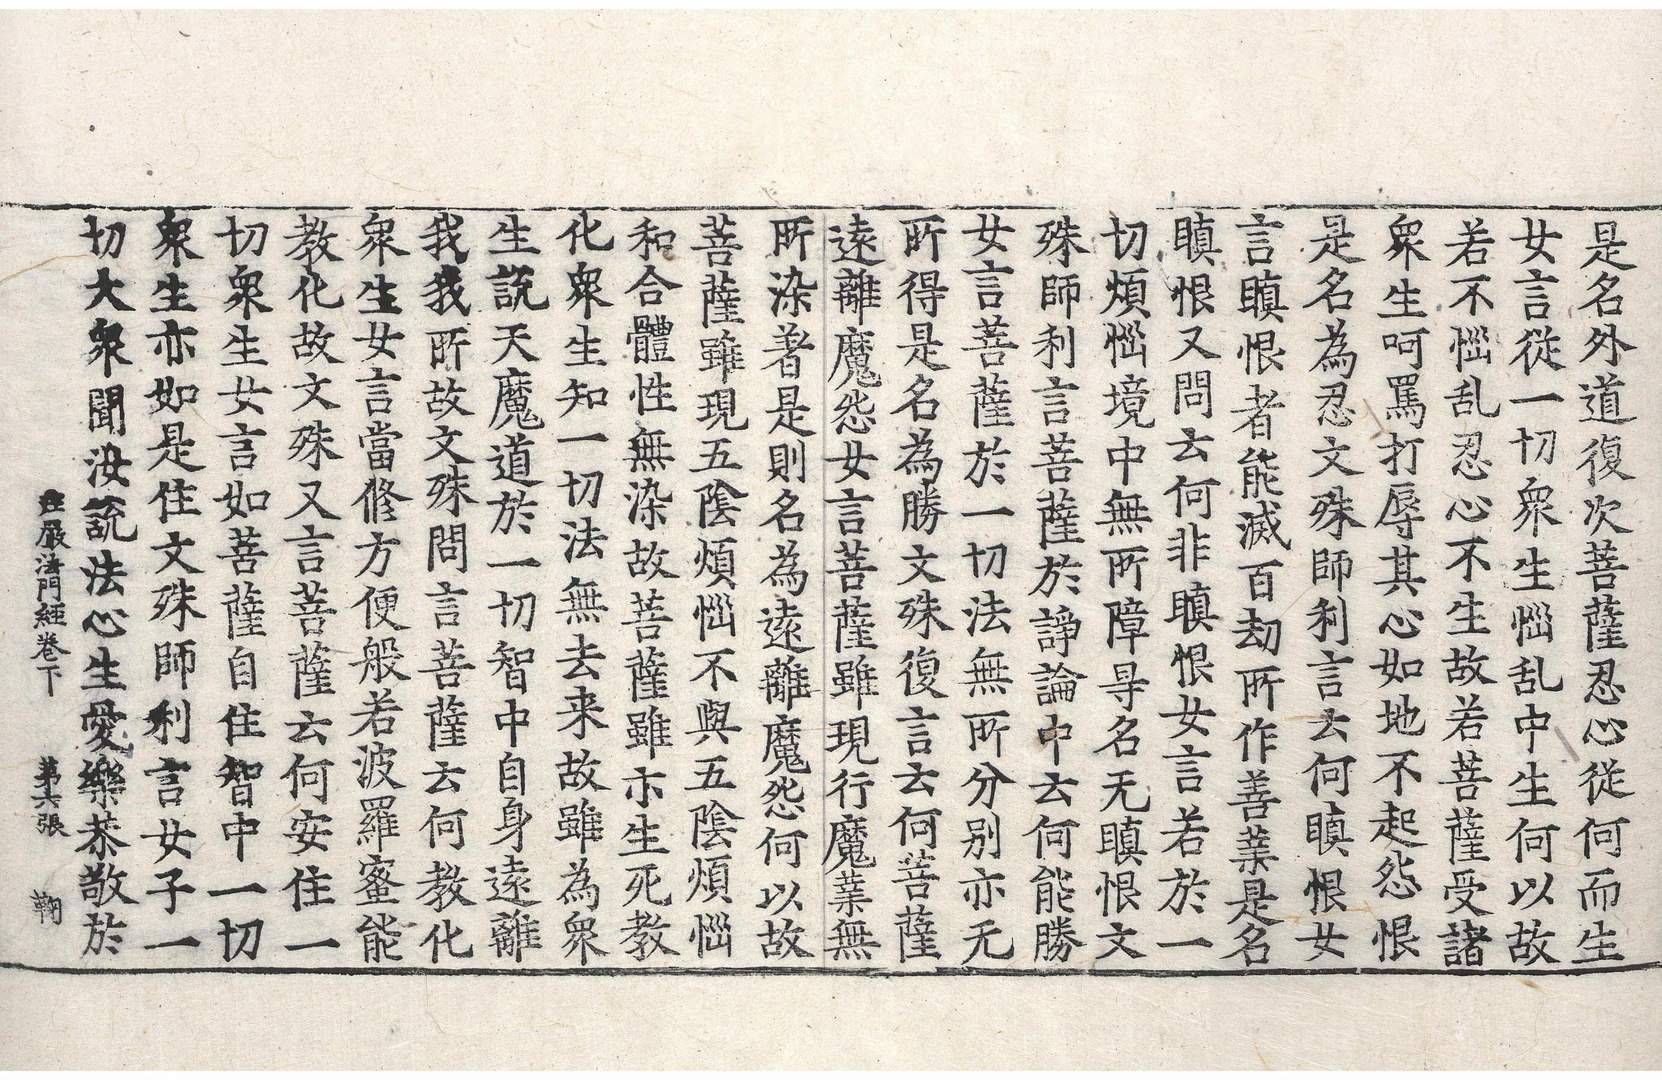 是名外道復次菩薩忍心從何而生
女言從一切衆生惱乱中生何以故
若不惱乱忍心不生故若菩薩受諸
衆生呵罵打辱其心如地不起怨恨
是名為忍文殊師利言云何瞋恨女
言瞋恨者能滅百劫所作善業是名
瞋恨又問云何非瞋恨女言若於一
切煩惱境中無所障㝵名无瞋恨文
殊師利言菩薩於諍論中云何能勝
女言菩薩於一切法無所分别亦无
所得是名為勝文殊復言云何菩薩
遠離魔怨女言菩薩雖現行魔業無
所染著是則名為遠離魔怨何以故
菩薩雖現五陰煩惱不與五陰煩惱
和合體性無染故菩薩雖示生死教
化衆生知一切法無去来故雖為衆
生說天魔道於一切智中自身遠離
我我所故文殊問言菩薩云何教化
衆生女言當修方便般若波羅蜜能
教化故文殊又言菩薩云何安住一
切衆生女言如菩薩自住智中一切
衆生亦如是住文殊師利言女子一
切大衆聞汝說法心生愛樂恭敬於
莊嚴法門經卷下　第六張　鞠